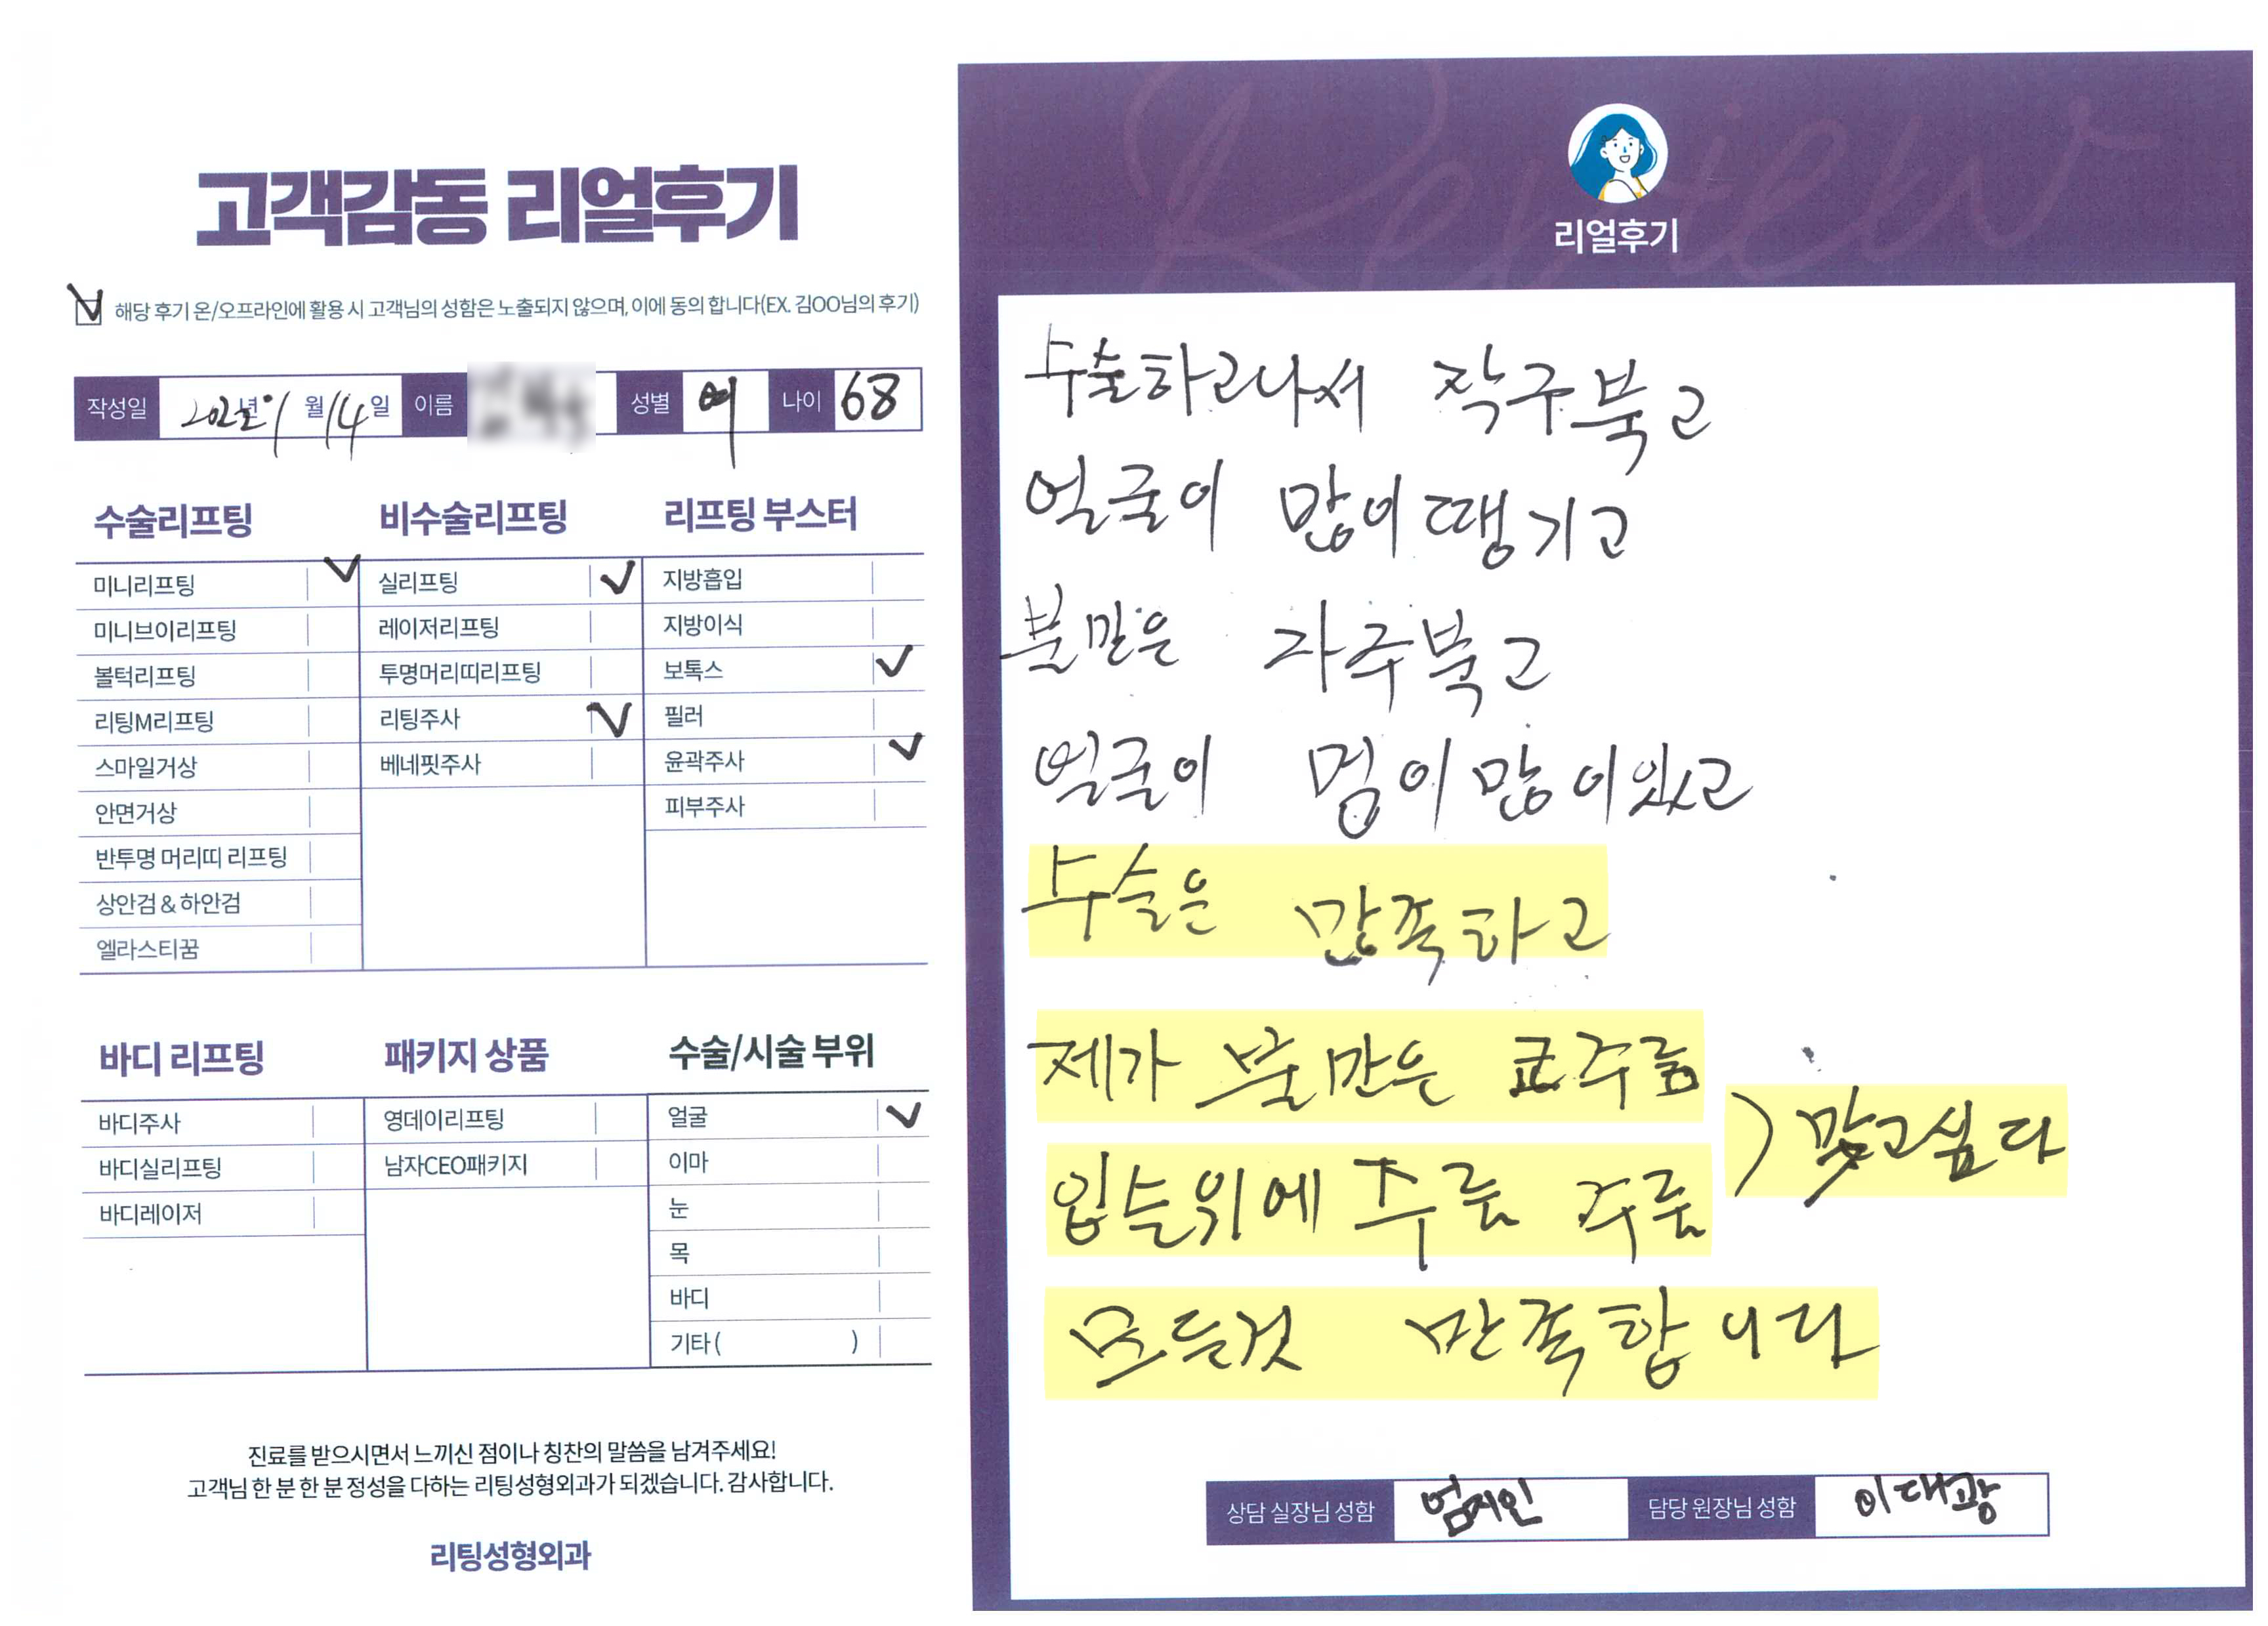 고객감동 리얼후기
해당 후기 온/오프라인에 활용 시 고객님의 성함은 노출되지 않으며, 이에 동의 합니다(EX. 김OO님의 후기)
작성일 2022년 1월 14일 이름 성별 여 나이 68
수술리프팅
미니리프팅
미니브이리프팅
볼턱리프팅
리팅M리프팅
스마일거상
안면거상
반투명 머리띠 리프팅
상안검 & 하안검
엘라스티꿈
비수술리프팅
실리프팅
레이저리프팅
투명머리띠리프팅
리팅주사
베네핏주사
리프팅 부스터
지방흡입
지방이식
보톡스
필러
윤곽주사
피부주사
바디 리프팅
바디주사
바디실리프팅
바디레이저
패키지 상품
영데이리프팅
남자CEO패키지
수술/시술 부위
얼굴
이마
눈
목
바디
기타( )
진료를 받으시면서 느끼신 점이나 칭찬의 말씀을 남겨주세요!
고객님 한 분 한 분 정성을 다하는 리팅성형외과가 되겠습니다. 감사합니다.
리팅성형외과
Review
리얼후기
수술하고나서 작구붓고
얼굴이 많이땡기고
불만은 자주붓고
얼굴이 멈이많이있고
수술은 만족하고
제가 불만은 주름
입술위에 주름 주름
맞고싶다
모든것 만족합니다
상담 실장님 성함 엄지인 담당 원장님 성함 이대광